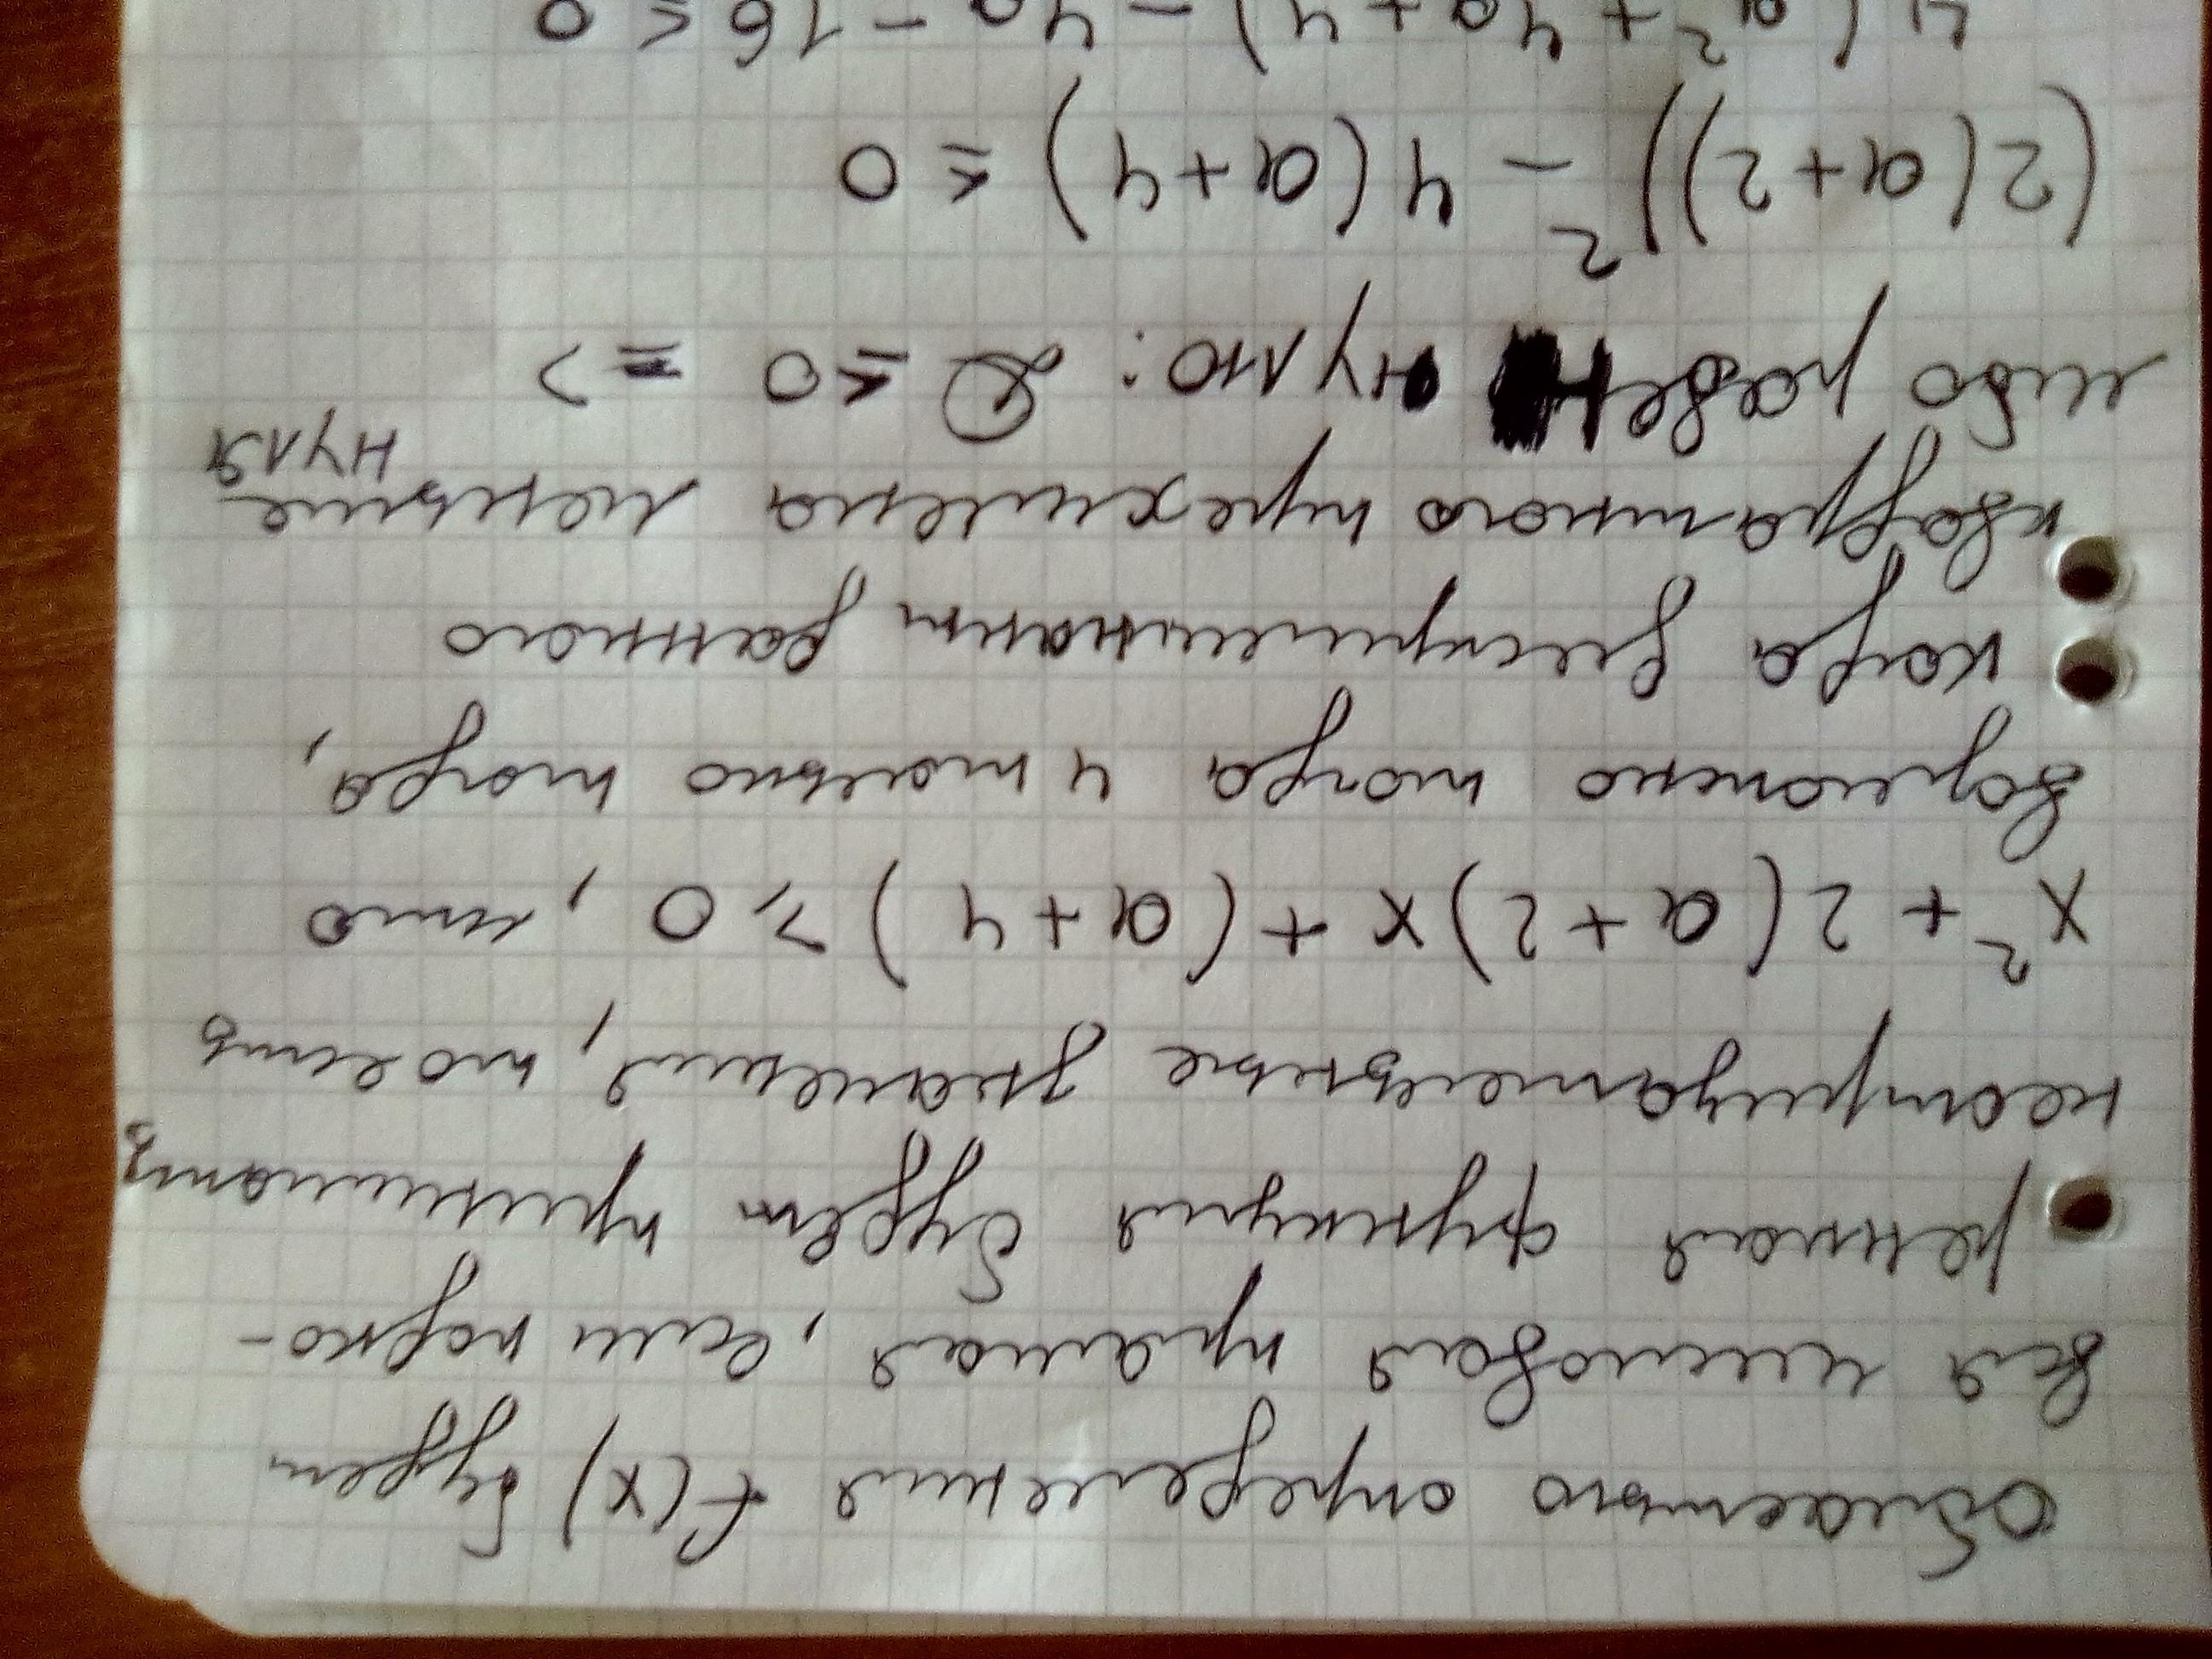 Областью определения f(x) будет
вся числовая прямая, если подко-
ренная функция будет принимать
неотрицательные значения, то есть
x² + 2(a+2)x + (a+4) ⩾ 0, что
возможно тогда и только тогда,
когда дискриминант данного
квадратного трехчлена меньше
нуля
либо равен нулю: D ≤ 0 =>
(2(a+2))² - 4(a+4) ≤ 0
4(a² + 4a + 4) - 4a - 16 ≤ 0